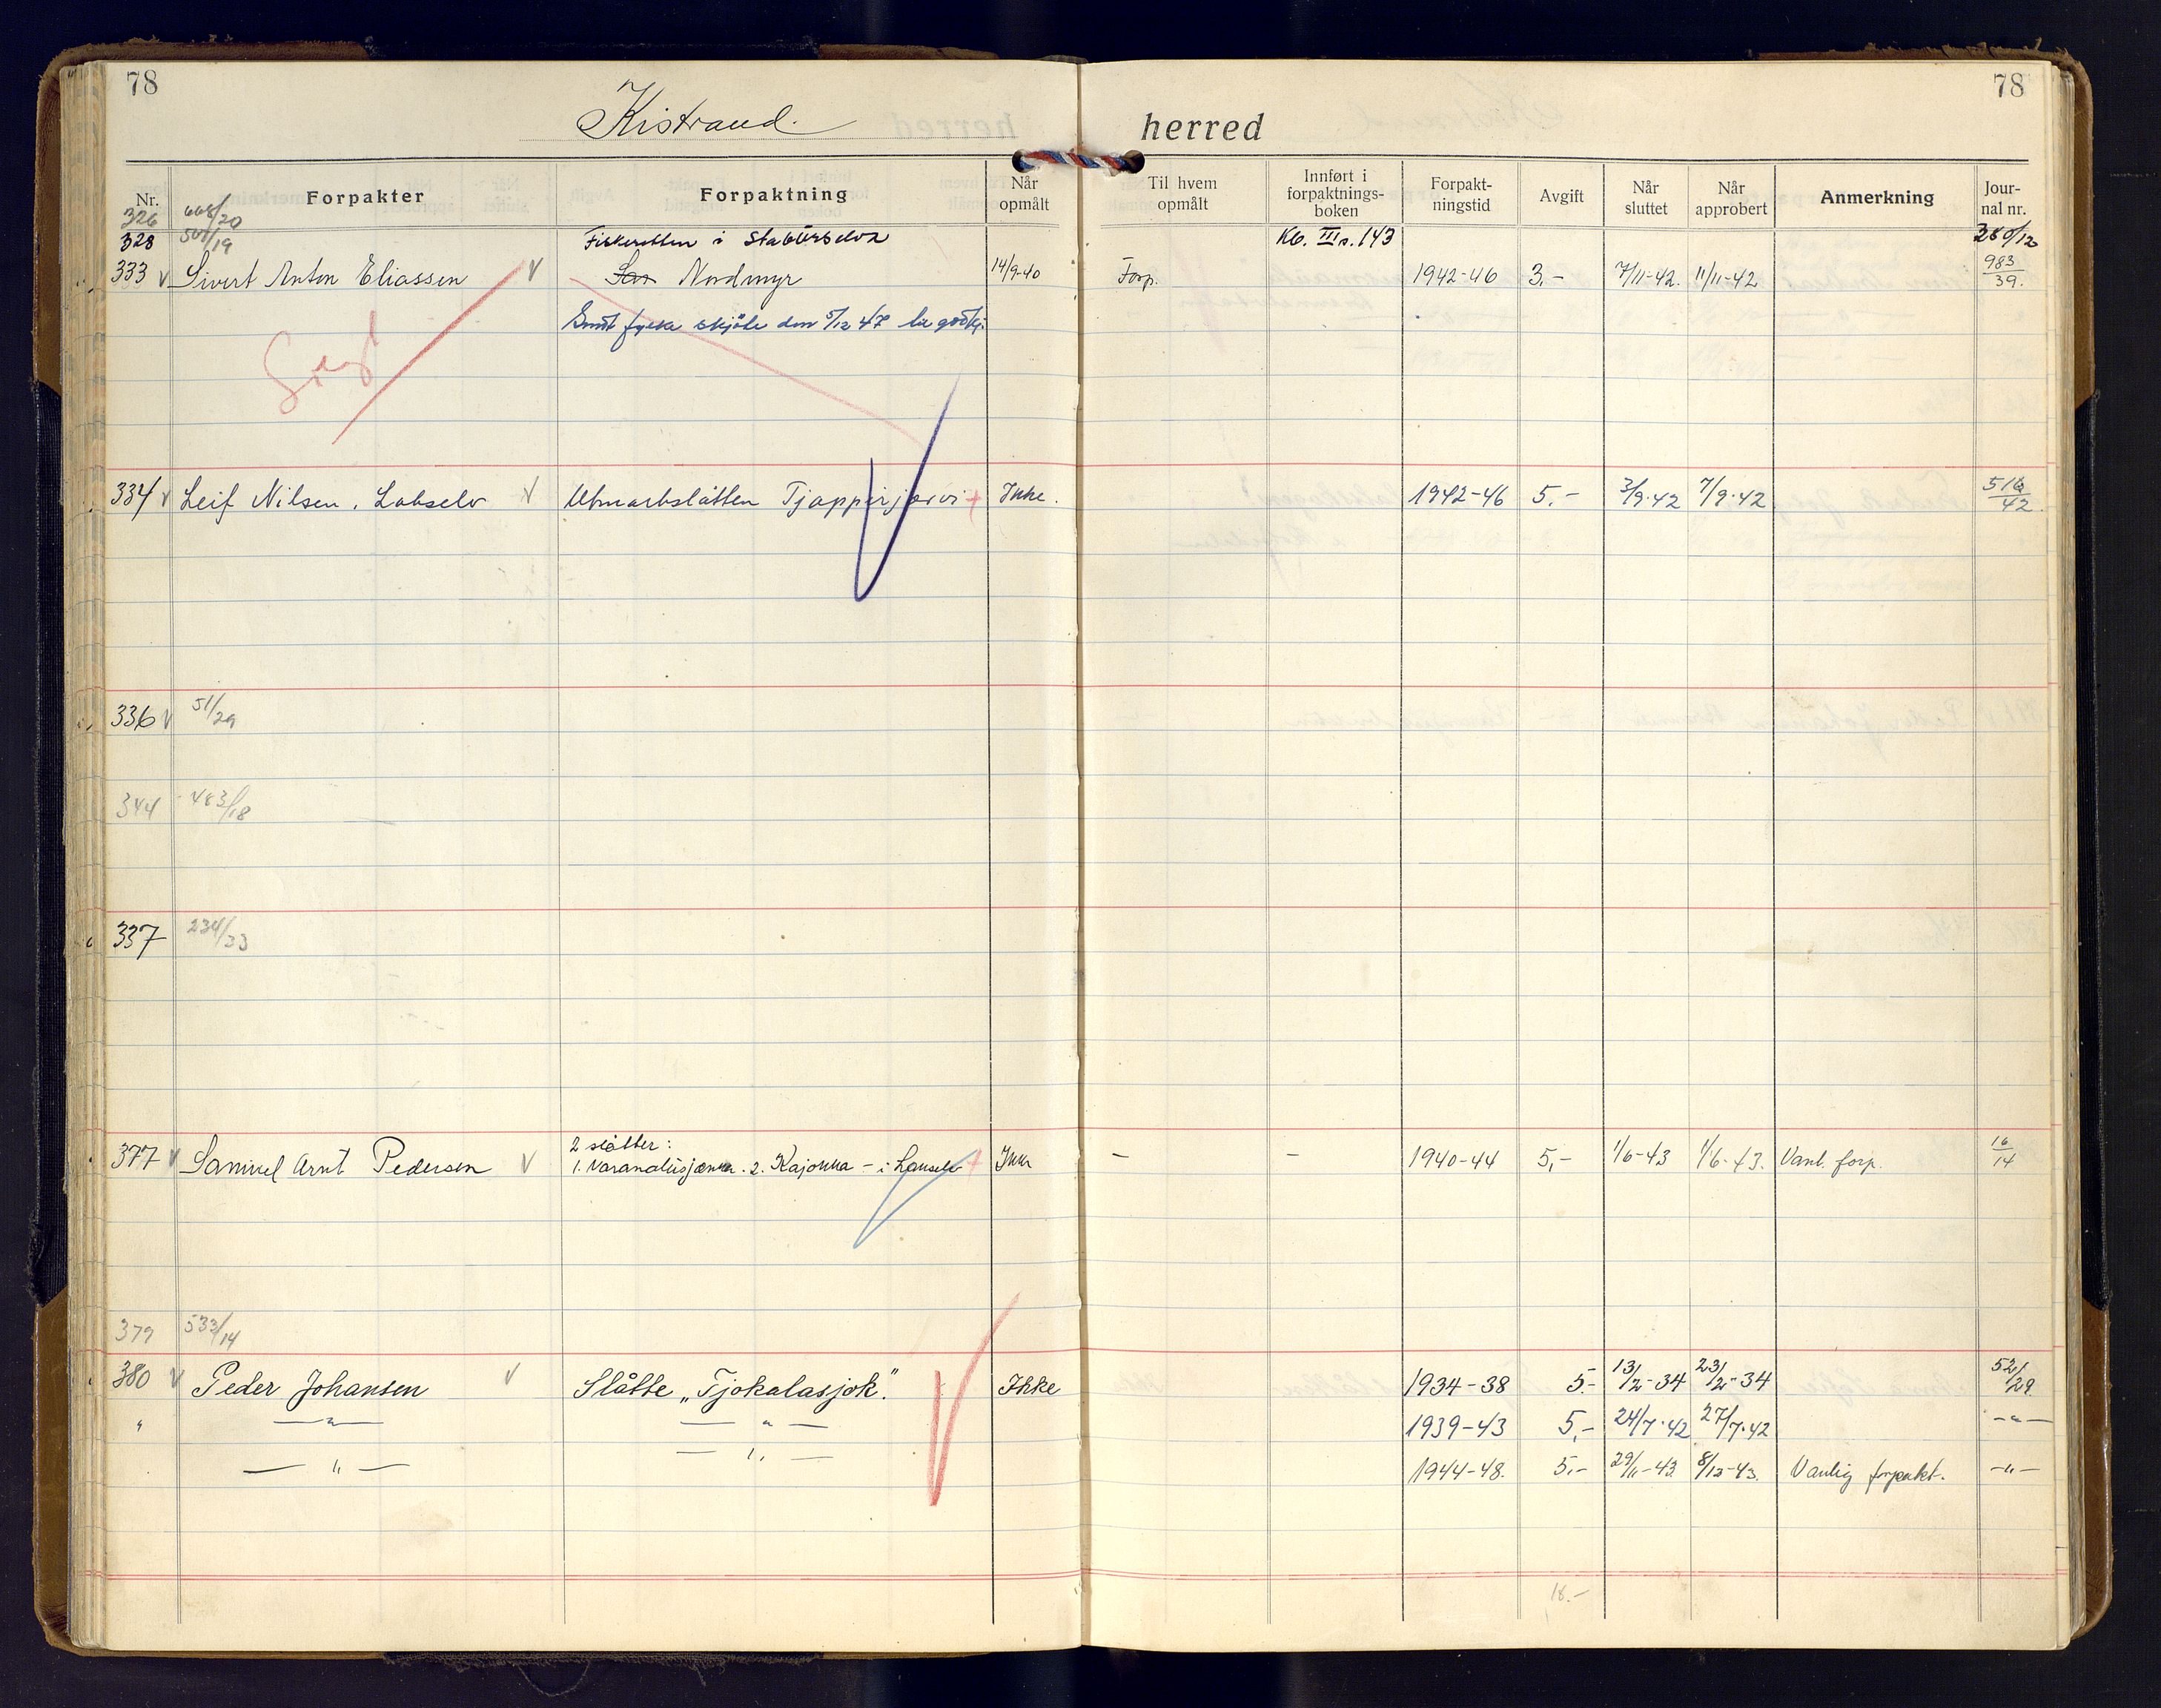 78 78
Kistrand. herred
Nr. Forpakter Forpaktning Når opmålt Til hvem opmålt Innført i forpaktnings-boken Forpakt-ningstid Avgift Når sluttet Når approbert Anmerkning Jour-nal nr.
326 668/20
328 501/19 Fiskeretten i Kb. III s. 143 280/12
333 V Sivert Anton Eliassen V Nordmyr 14/9-40 Forp. 1942-46 3,- 7/11-42. 11/11-42 983/39.
skjöte den 5/12 47
334 V Leif Nilsen, Lakselv V Utmarkslåtten Tjappirjervi + Ikke. 1942-46 5.- 3/9-42 7/9-42 516/42.
336 V 51/29
344 483/18
337 234/33
377 V Samuel Arnt Pedersen V 2 slåtter:
1. 2. Kajokka - i Lakselv + Ikke - - 1940-44 5,- 1/6-43 1/6-43. Vanl. forp. 16/14
379 533/14
380 V Peder Johansen V Slåtte „Tjokalasjok". Ikke 1934-38 5.- 13/2-34 23/2-34 52/29.
" —"— —"— 1939-43 5,- 24/7-42 27/7-42 -"-
—"— —"— 1944-48. 5.- 29/11-43. 8/12-43. Vanlig forpakt. -"-
18.-